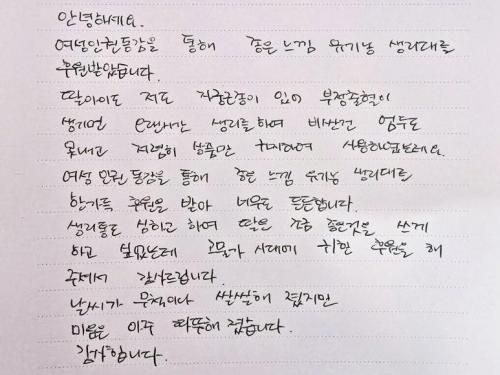 안녕하세요.
여성인권동감을 통해 좋은느낌 유기농 생리대를
후원받았습니다.
딸아이도 저도 자궁근종이 있어 부정출혈이
생기면 오랜시간 생리를하여 비싼건 엄두도
못내고 저렴한 상품만 사용하였는데요.
여성 인권 동감을 통해 좋은 느낌 유기농 생리대를
한가득 후원을 받아 너무도 든든합니다.
생리통도 심하고 하여 딸은 조금 좋은것을 쓰게
하고 싶었는데 고물가 시대에 귀한 후원을 해
주셔서 감사드립니다.
날씨가 무척이나 쌀쌀해 졌지만
마음은 아주 따뜻해 졌습니다.
감사합니다.